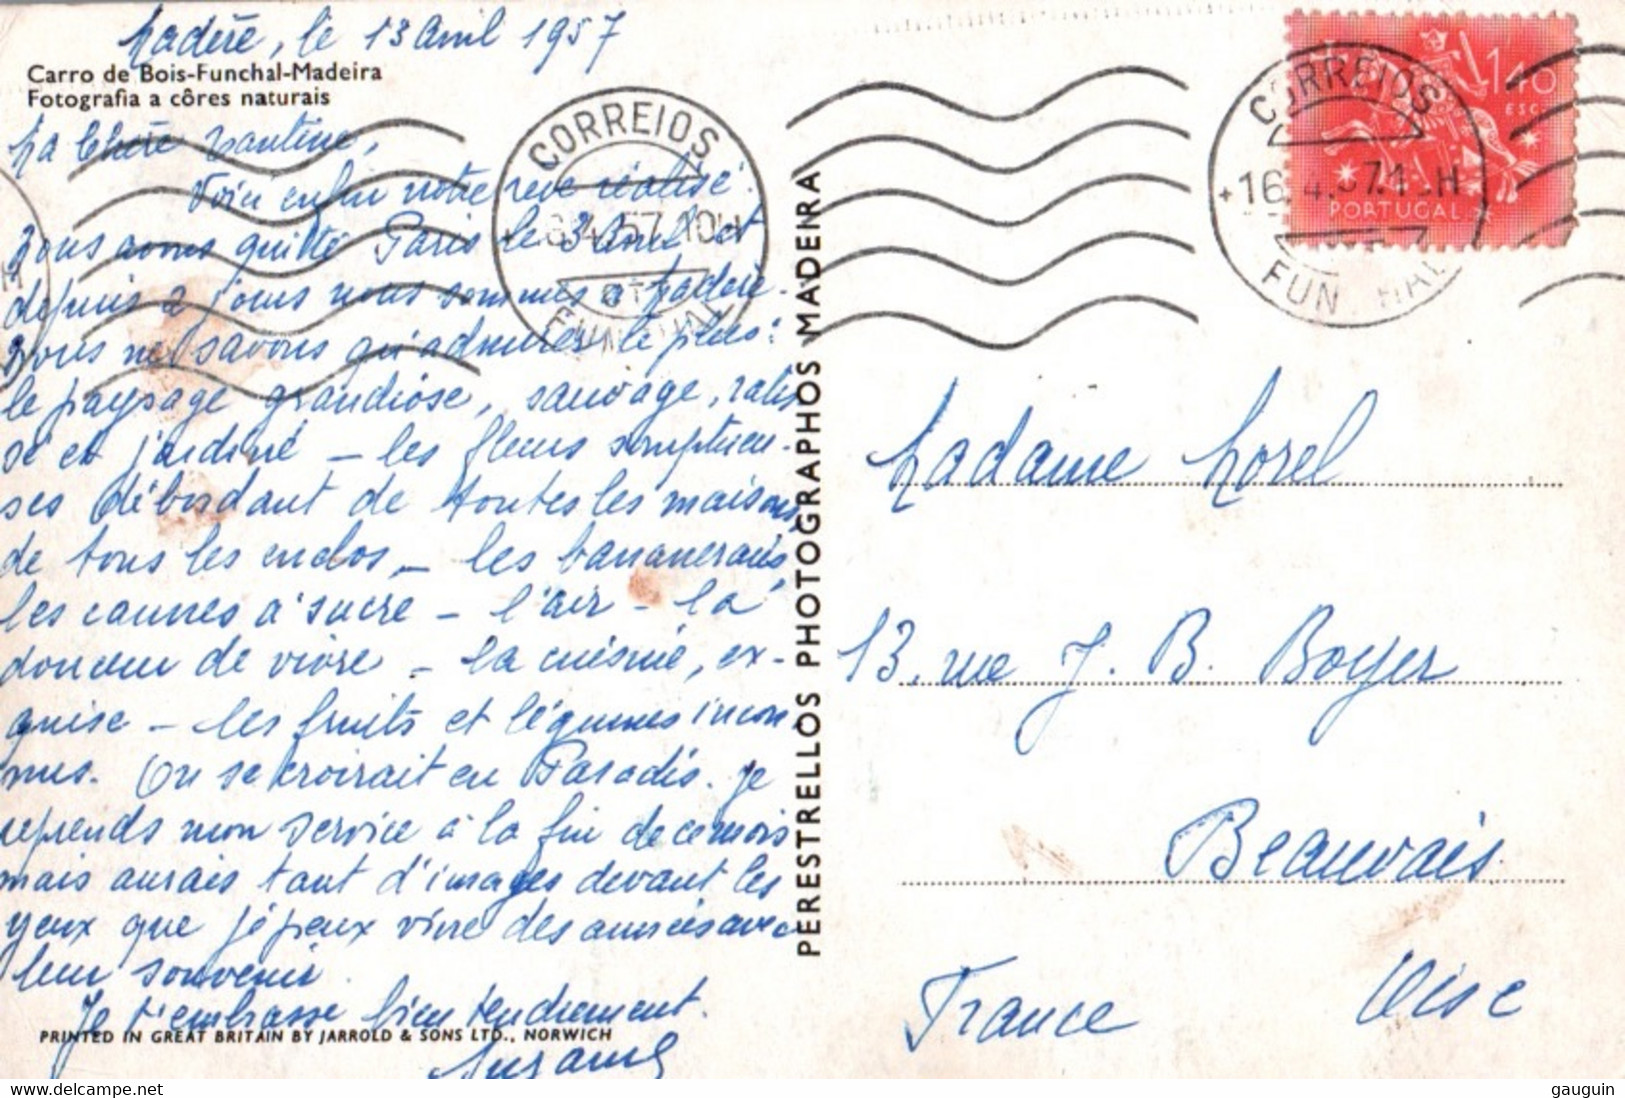 Madère, le 13 Avril 1957
Carro de Bois-Funchal-Madeira
Fotografia a côres naturais
Ma Chère Tantine,
Voici enfin notre rêve réalisé.
Nous avons quitté Paris le 3 Avril et
depuis 2 jours nous sommes à Madère.
Nous ne savons qu'admirer le plus:
le paysage grandiose, sauvage, ratis
sé et jardiné – les fleurs somptueu-
ses débordant de toutes les maisons,
de tous les enclos, – les bananeraies,
les cannes à sucre – l'air – la
douceur de vivre – la cuisine, ex-
quise – les fruits et légumes incon
nus. On se croirait en Paradis. Je
reprends mon service à la fin de ce mois
mais aurais tant d'images devant les
yeux que je peux vivre des années avec
leur souvenir.
Je t'embrasse bien tendrement.
Suzanne
PRINTED IN GREAT BRITAIN BY JARROLD & SONS LTD., NORWICH
CORREIOS
6.4.57.10H
FUNCHAL
PERESTRELLOS PHOTOGRAPHOS MADEIRA
CORREIOS
+16.4.57.1 H
FUNCHAL
1$40
ESC.
PORTUGAL
Madame Morel
13, rue J. B. Boyer
Beauvais
Oise
France
www.delcampe.net
gauguin